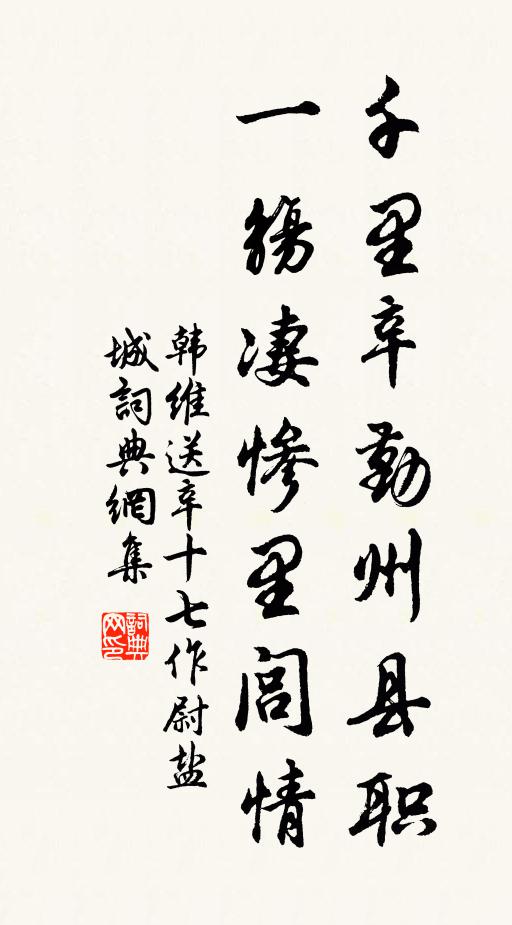 千里辛勤州县职
一觞凄惨里闾情
韩维送辛十七作尉盐
城詞典網集
詞典
网印